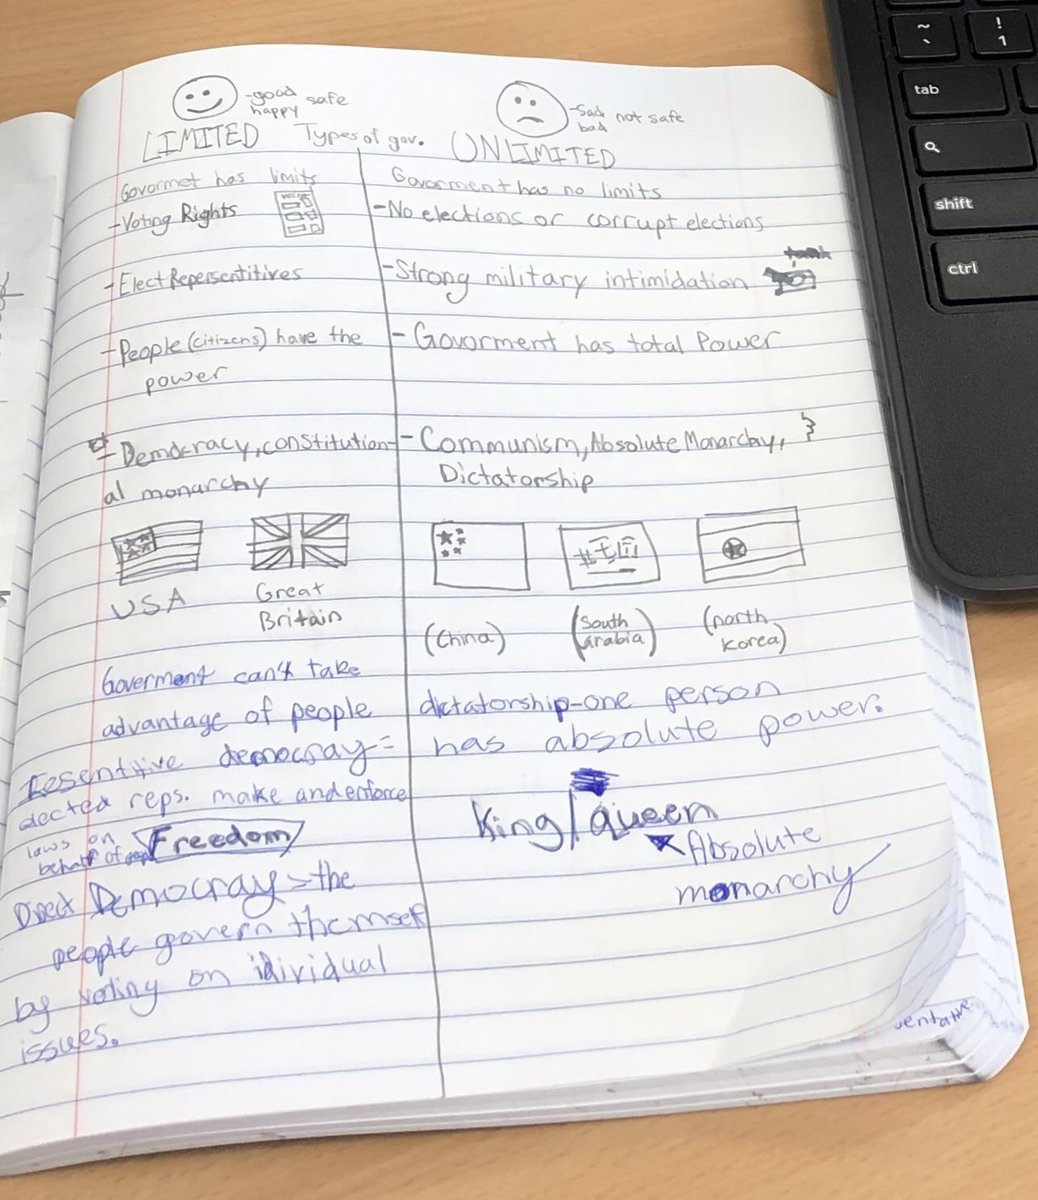 -good
happy safe
-Sad not safe
bad
LIMITED Types of gov. UNLIMITED
Govormet has limits
-Voting Rights
-Elect Repersentitives
-People (citizens) have the
power
- Democracy, constitution-
al monarchy
USA
Great
Britain
Goverment can't take
advantage of people
resentitive democray=
elected reps. make and enforce
laws on
behalf of
Freedom
Direct Democray > the
people govern themself
by voting on idividual
issues.
Govorment has no limits
-No elections or corrupt elections
-Strong military intimidation
tank
- Govorment has total Power
- Communism, Absolute Monarchy,
Dictatorship
(China)
(South
arabia)
(north
Korea)
dictatorship-one person
has absolute power.
King/queen
Absolute
monarchy
~
`
!
1
tab
shift
ctrl